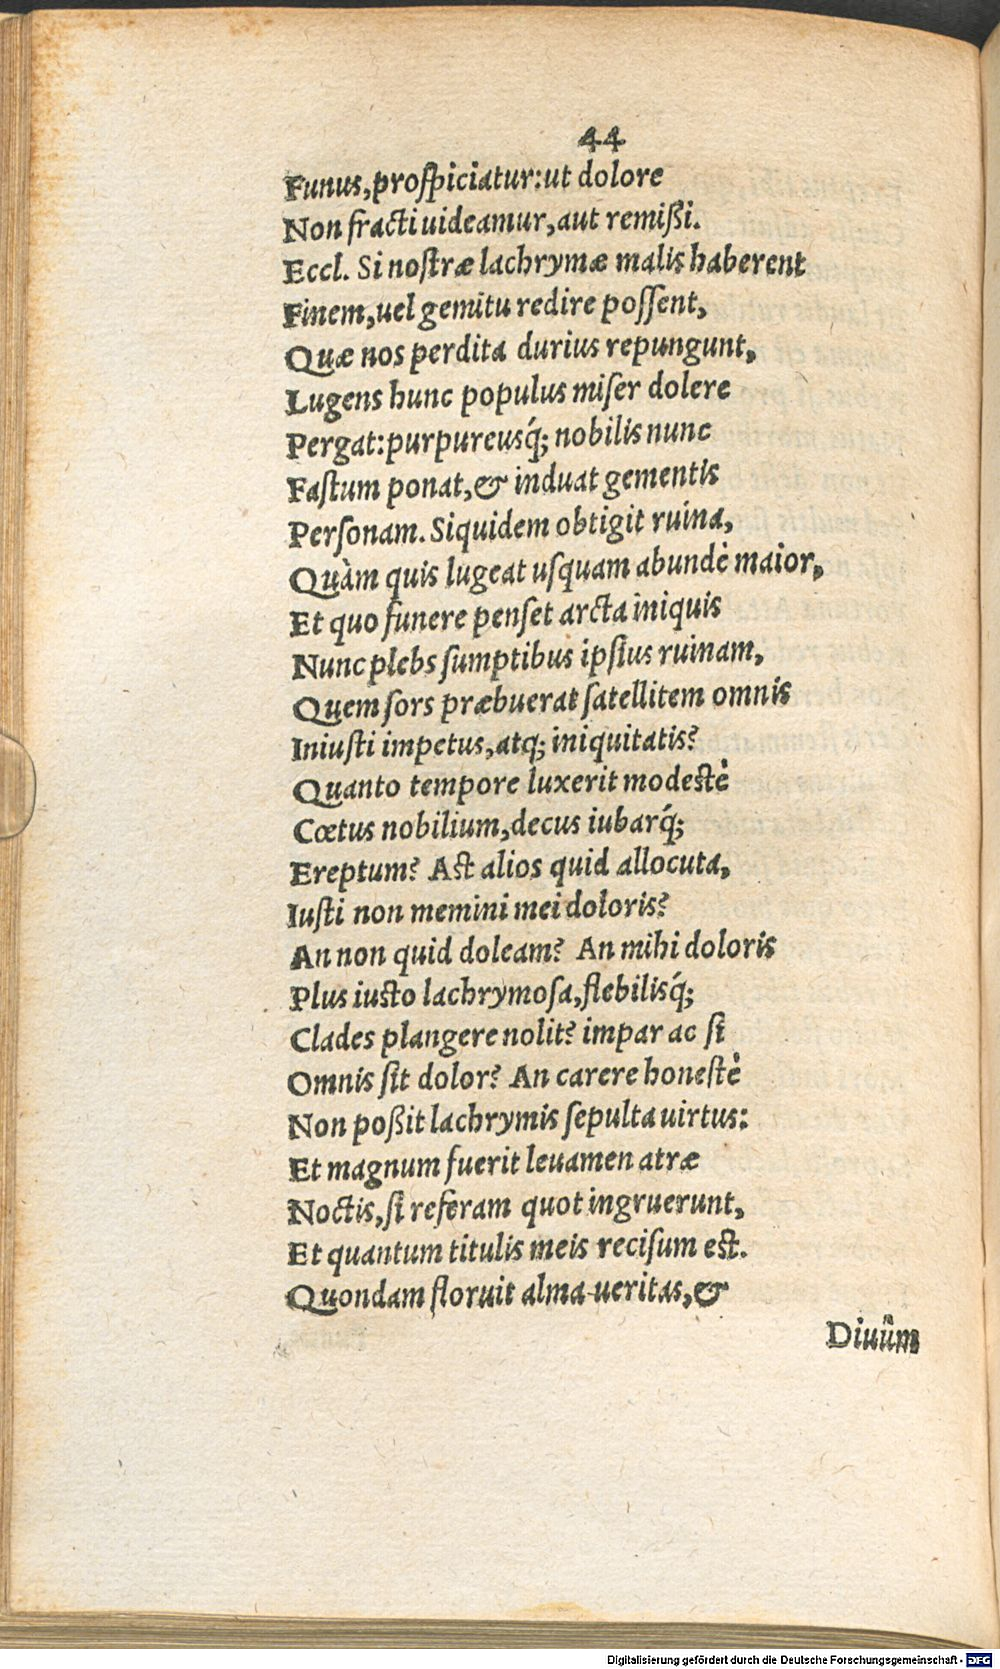 44
Funus,proſpiciatur:ut dolore
Non fracti uideamur,aut remißi.
Eccl. Si noſtræ lachrymæ malis haberent
Finem,uel gemitu redire poſſent,
Quæ nos perdita durius repungunt,
Lugens hunc populus miſer dolere
Pergat:purpureusq́; nobilis nunc
Faſtum ponat,& induat gementis
Perſonam. Siquidem obtigit ruina,
Quàm quis lugeat uſquam abundè maior,
Et quo funere penſet arcta iniquis
Nunc plebs ſumptibus ipſius ruinam,
Quem ſors præbuerat ſatellitem omnis
Iniuſti impetus,atq; iniquitatis?
Quanto tempore luxerit modeſtè
Cœtus nobilium,decus iubarq́;
Ereptum? Aſt alios quid allocuta,
Iuſti non memini mei doloris?
An non quid doleam? An mihi doloris
Plus iuſto lachrymoſa,flebilisq́;
Clades plangere nolit? impar ac ſi
Omnis ſit dolor? An carere honeſtè
Non poßit lachrymis ſepulta uirtus:
Et magnum fuerit leuamen atræ
Noctis,ſi referam quot ingruerunt,
Et quantum titulis meis reciſum eſt.
Quondam floruit alma ueritas,&
Diuûm
Digitalisierung gefördert durch die Deutsche Forschungsgemeinschaft - DFG